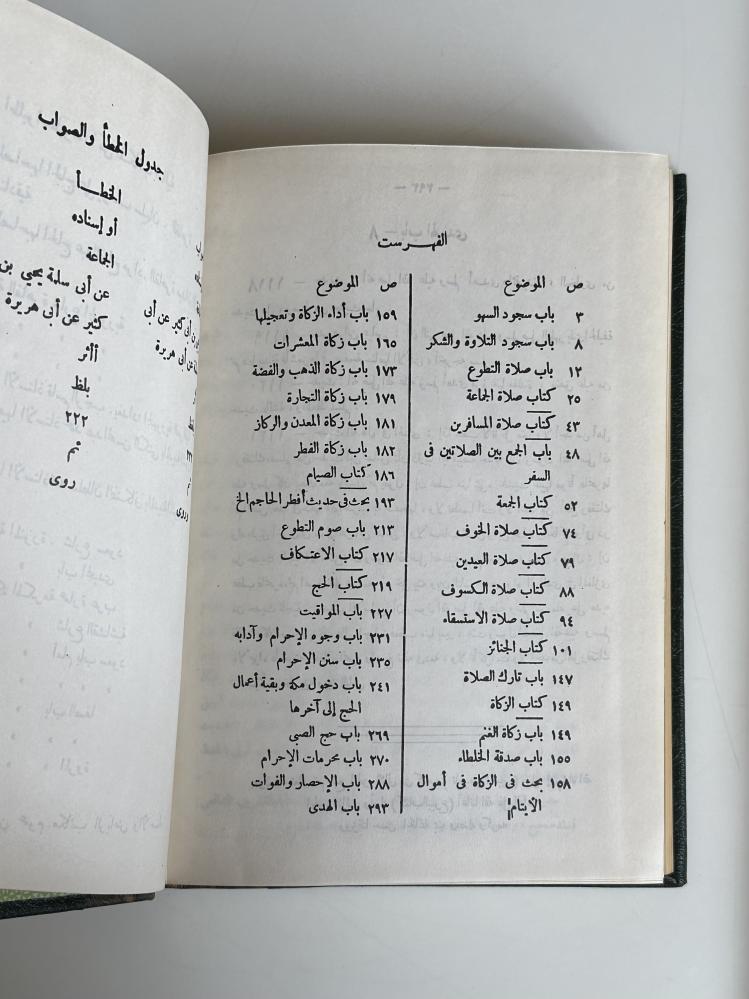 الفهرست
ص الموضوع
٣ باب سجود السهو
٨ باب سجود التلاوة والشكر
١٢ باب صلاة التطوع
٢٥ كتاب صلاة الجماعة
٤٣ كتاب صلاة المسافرين
٤٨ باب الجمع بين الصلاتين فى
السفر
٥٢ كتاب الجمعة
٧٤ كتاب صلاة الخوف
٧٩ كتاب صلاة العيدين
٨٨ كتاب صلاة الكسوف
٩٤ كتاب صلاة الاستسقاء
١٠١ كتاب الجنائز
١٤٧ باب تارك الصلاة
١٤٩ كتاب الزكاة
١٤٩ باب زكاة الغنم
١٥٥ باب صدقة الخلطاء
١٥٨ بحث فى الزكاة فى أموال
الايتام
ص الموضوع
١٥٩ باب أداء الزكاة وتعجيلها
١٦٥ باب زكاة المعشرات
١٧٣ باب زكاة الذهب والفضة
١٧٩ باب زكاة التجارة
١٨١ باب زكاة المعدن والركاز
١٨٢ باب زكاة الفطر
١٨٦ كتاب الصيام
١٩٣ بحث فى حديث أفطر الحاجم الخ
٢١٣ باب صوم التطوع
٢١٧ كتاب الاعتكاف
٢١٩ كتاب الحج
٢٢٧ باب المواقيت
٢٣١ باب وجوه الإحرام وآدابه
٢٣٥ باب سنن الإحرام
٢٤١ باب دخول مكة وبقية أعمال
الحج إلى آخرها
٢٦٩ باب حج الصبى
٢٧٠ باب محرمات الإحرام
٢٨٨ باب الإحصار والفوات
٢٩٣ باب الهدى
جدول الخطأ والصواب
الخطـأ
أو إسناده
الجماعة
عن أبى سلمة يحيي بن
كثير عن أبى هريرة
بن أبى كثير عن أبى
عن أبى هريرة
أأثر
بلظ
٢٢٢
ثم
روى
روى